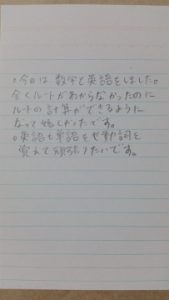 ・今日は数学と英語をしました。
全くルートがわからなかったのに
ルートの計算ができるように
なって嬉しかったです。
・英語も単語や動詞を
覚えて頑張りたいです。